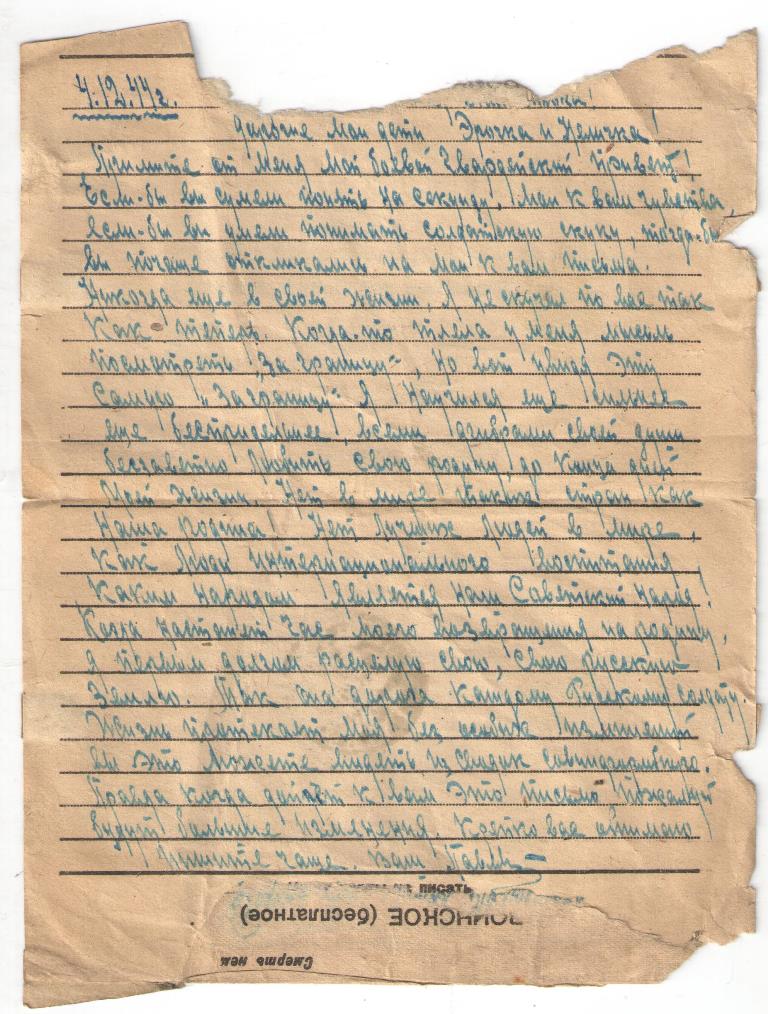 4.12.44г.
дорогие мои дети! Эрочка и Неличка!
Примите от меня мой боевой Гвардейский привет!
Если-бы вы сумели понять на секунду, мои к вам чувства
если-бы вы умели понимать солдатскую скуку, тогда-бы
вы почаще откликались на мои к вам письма.
Никогда еще в своей жизни, я не скучал по вас так
как теперь. Когда-то тлела у меня мысль
посмотреть "Заграницу", но вот увидя эту
самую "Заграницу" я научился еще сильнее
еще беспредельнее, всеми фибрами своей души
беззаветно любить свою родину, до конца дней
жизни. Нет в мире таких стран как
наша родина! Нет лучших людей в мире,
как люди интернационального воспитания,
каким народом является наш Советский народ!
Когда настанет час моего возвращения на родину,
я первым долгом расцелую свою, свою русскую
землю. Так она дорога каждому Русскому солдату.
Жизнь протекает моя без особых изменений
вы это можете видеть из сводок Совинформбюро.
Правда когда дойдет к вам это письмо, пожалуй
будут большие изменения. Крепко вас обнимаю
Пишите чаще. Ваш
не писать
ВОИНСКОЕ (бесплатное)
Смерть нем